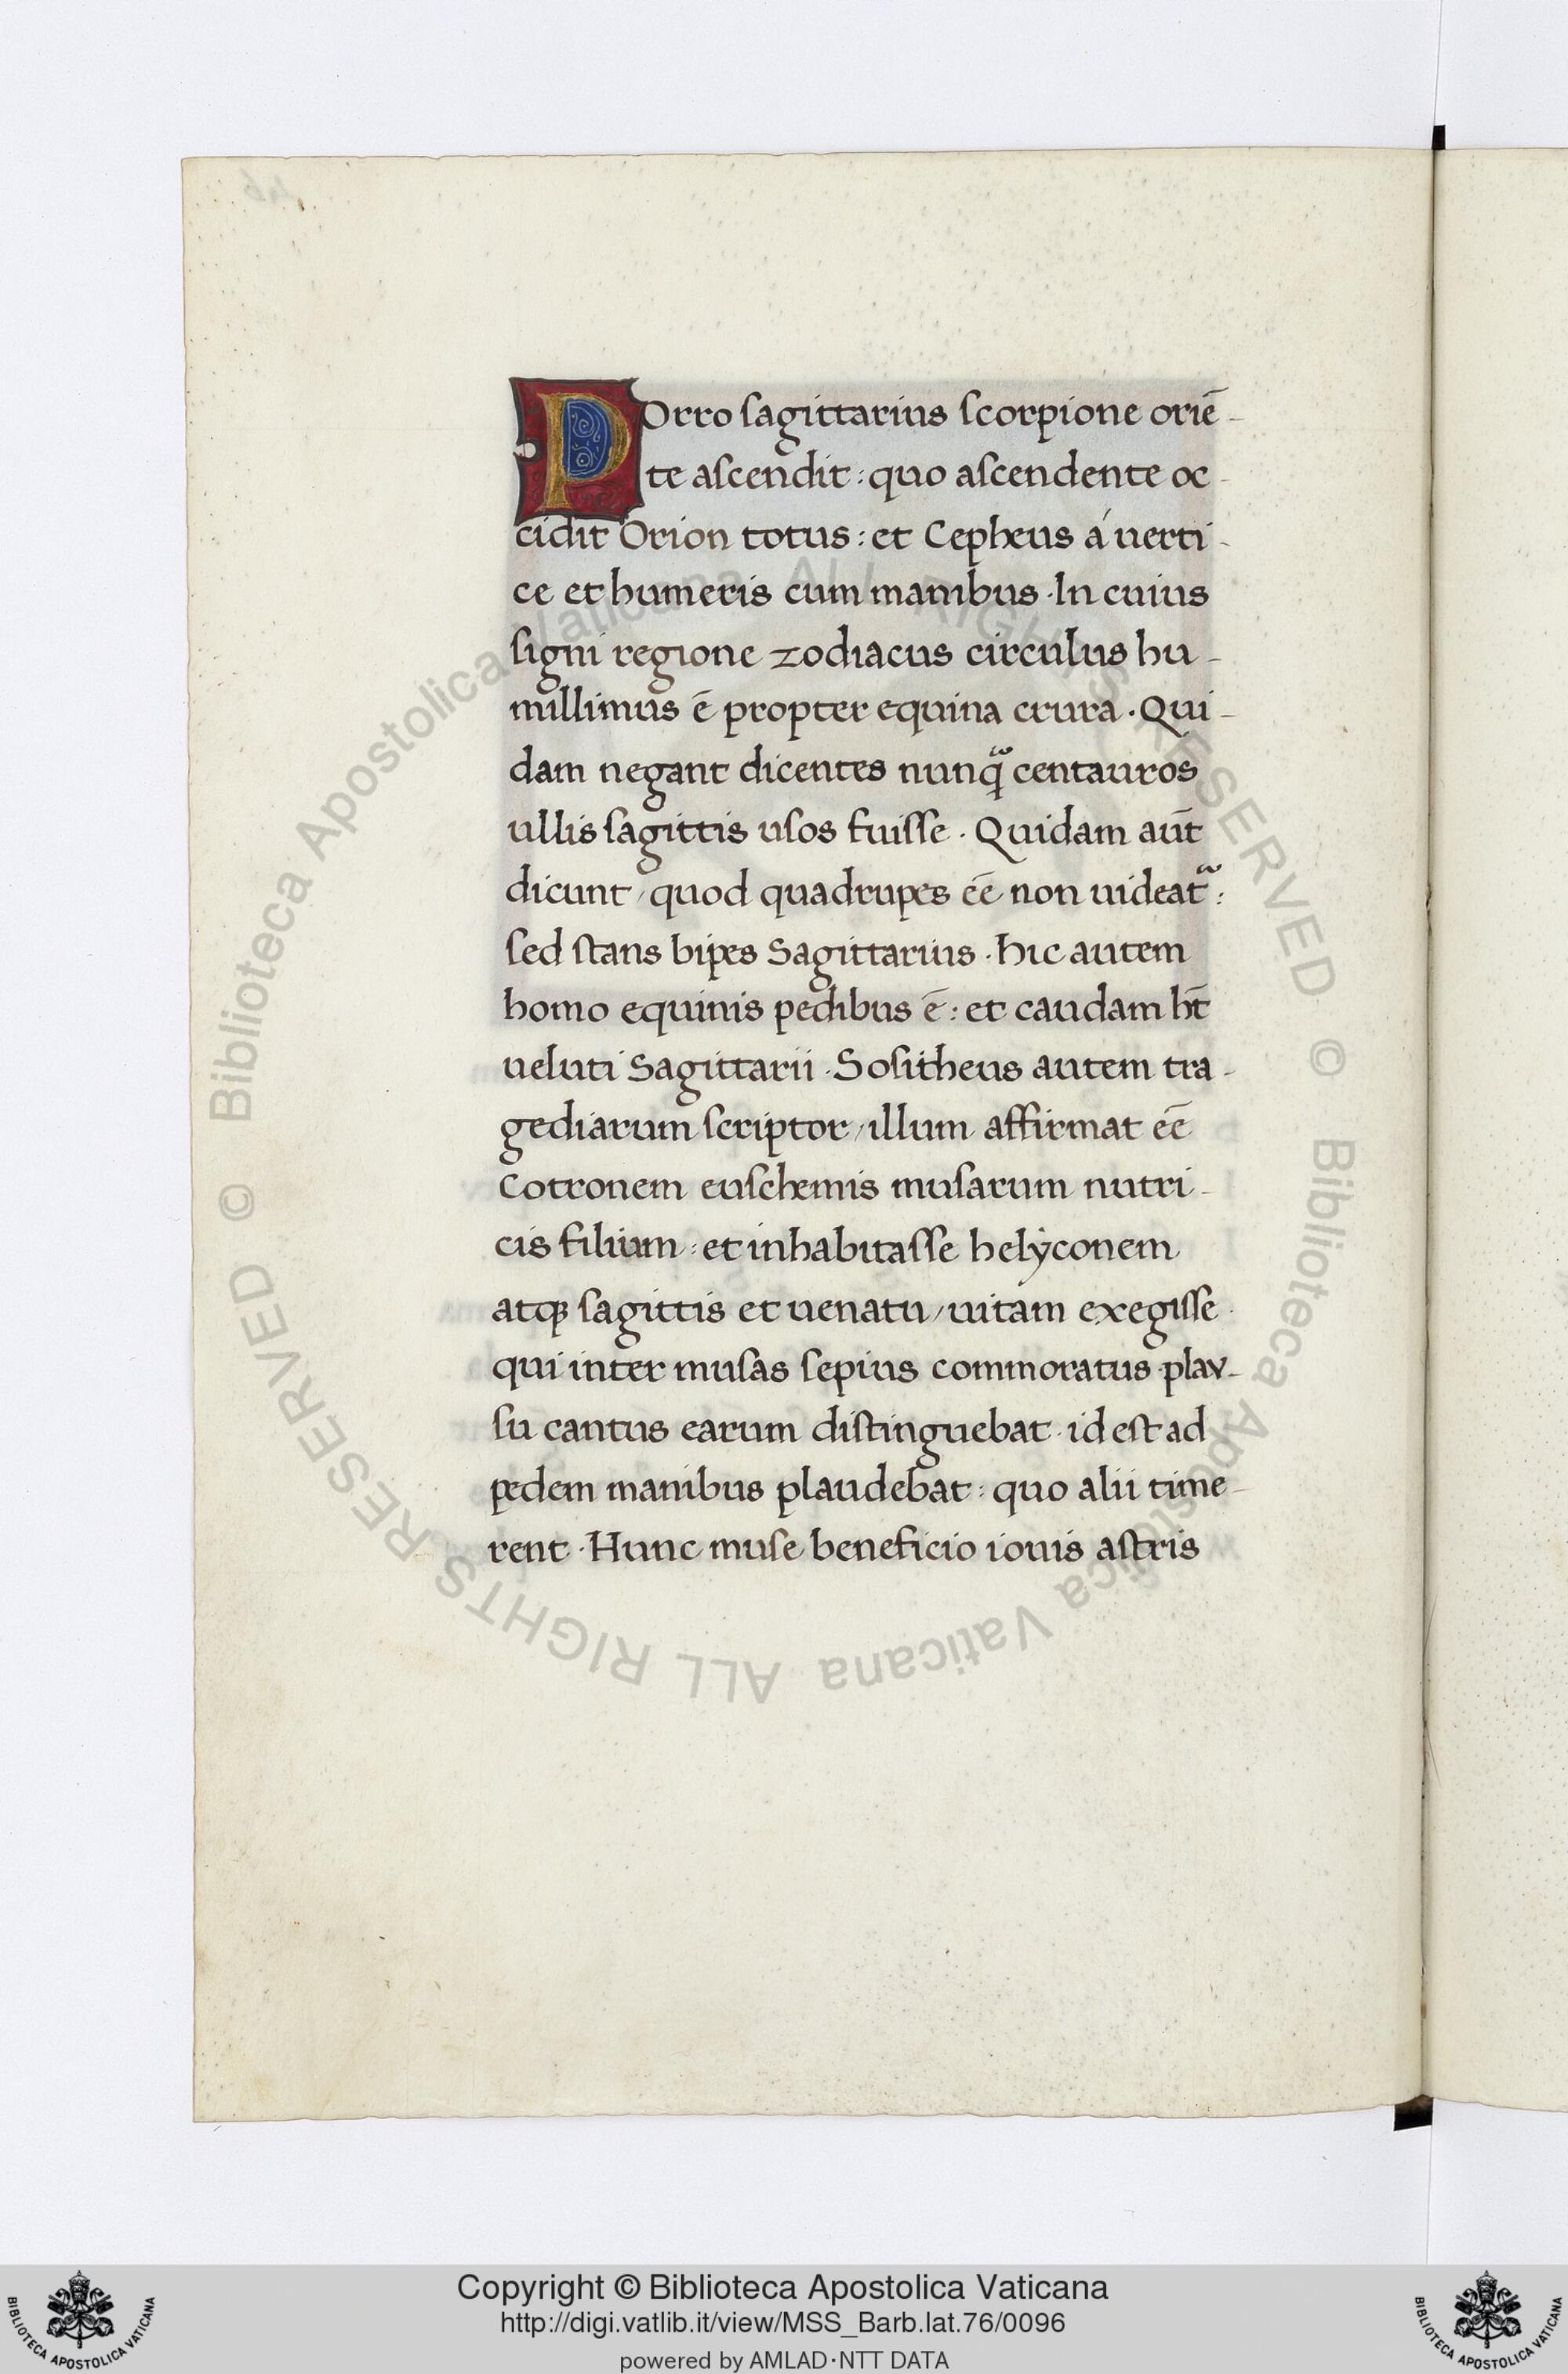 POrro sagittarius scorpione oriē-
te ascendit: quo ascendente oc-
cidit Orion totus: et Cepheus á uerti-
ce et humeris cum manibus. In cuius
signi regione zodiacus circulus hu-
millimus ē propter equina crura. Qui-
dam negant dicentes nunq̃ centauros
ullis sagittis usos fuisse. Quidam aūt
dicunt, quod quadrupes ēē non uideat᷑:
sed stans bipes Sagittarius. hic autem
homo equinis pedibus ē: et caudam hт̄
ueluti Sagittarii. Sositheus autem tra-
gediarum scriptor, illum affirmat ēē
Cotronem euschemis musarum nutri-
cis filium: et inhabitasse helẏconem
atqꝫ sagittis et uenatu, uitam exegisse.
qui inter musas sepius commoratus plav-
su cantus earum distinguebat. id est ad
pedem manibus plaudebat: quo alii time-
rent. Hunc muse beneficio iouis astris
© Biblioteca Apostolica Vaticana ALL RIGHTS RESERVED © Biblioteca Apostolica Vaticana ALL RIGHTS RESERVED
Copyright © Biblioteca Apostolica Vaticana
http://digi.vatlib.it/view/MSS_Barb.lat.76/0096
powered by AMLAD·NTT DATA
BIBLIOTECA APOSTOLICA VATICANA
BIBLIOTECA APOSTOLICA VATICANA